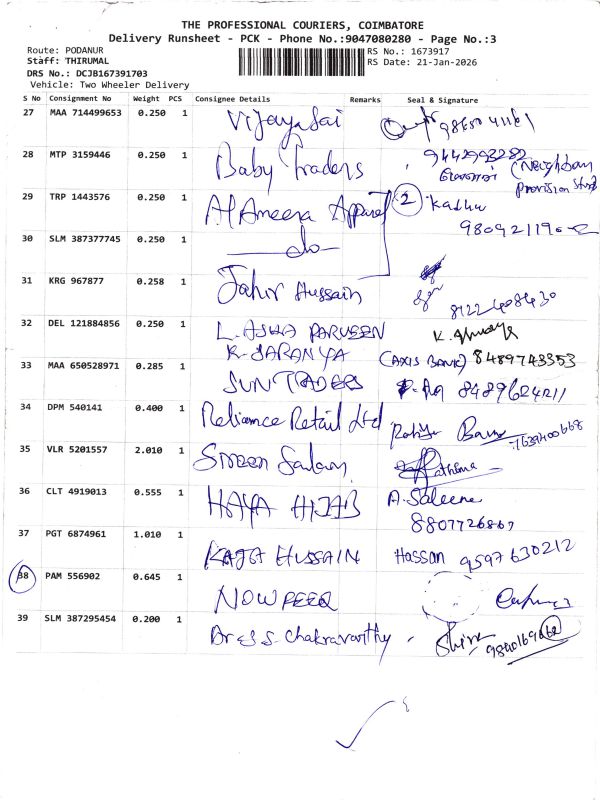 THE PROFESSIONAL COURIERS, COIMBATORE
Delivery Runsheet - PCK - Phone No.:9047080280 - Page No.:3
Route: PODANUR
RS No.: 1673917
Staff: THIRUMAL
RS Date: 21-Jan-2026
DRS No.: DCJB167391703
Vehicle: Two Wheeler Delivery
S No Consignment No Weight PCS Consignee Details Remarks Seal & Signature
27 MAA 714499653 0.250 1 Vijaya Sai
28 MTP 3159446 0.250 1 Baby Traders 9442993282
(Neighbour
provision store)
29 TRP 1443576 0.250 1 Al Ameera Apparel 2
30 SLM 387377745 0.250 1 do
31 KRG 967877 0.258 1 Jahir Hussain 8122408430
32 DEL 121884856 0.250 1 L. ASHA PARVEEN
K. SARANYA (AXIS BANK) 8489743353
33 MAA 650528971 0.285 1 SUN TRADERS 8489624211
34 DPM 540141 0.400 1 Reliance Retail Ltd
35 VLR 5201557 2.010 1 Fathima
36 CLT 4919013 0.555 1 HAYA HIJAB A. Saleena
8807726867
37 PGT 6874961 1.010 1 KAJA HUSSAIN Hassan 9597630212
38 PAM 556902 0.645 1 NOWFEER
39 SLM 387295454 0.200 1 Dr S. Chakravarthy